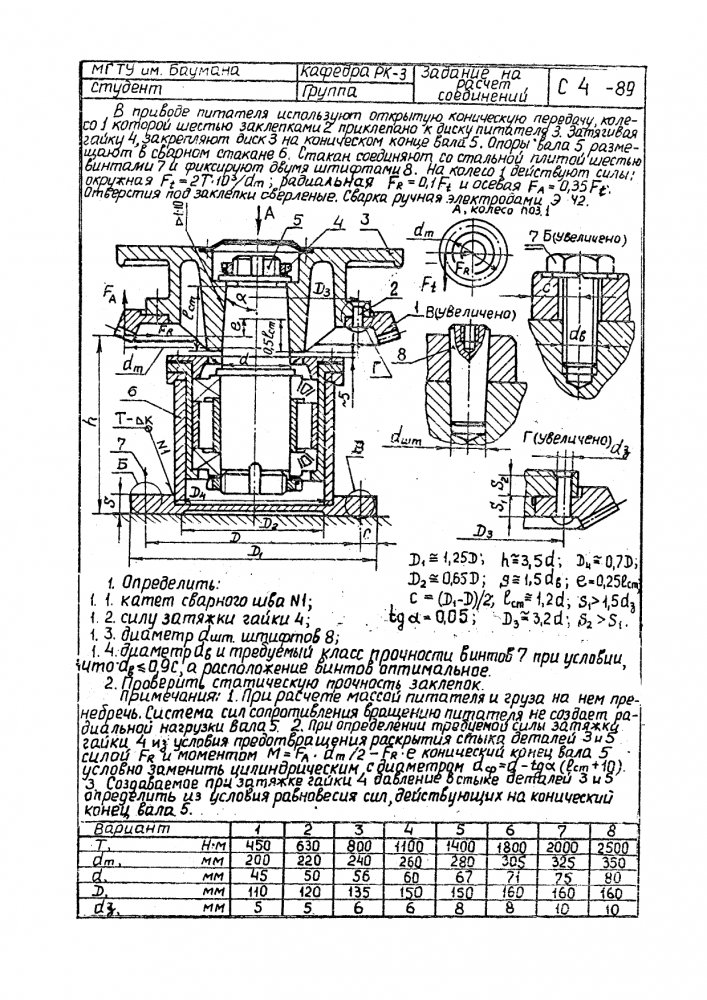 МГТУ им. Баумана
кафедра РК-3
Задание на расчет соединений
С 4 -89
студент
группа
В приводе питателя используют открытую коническую передачу, коле-
со 1 которой шестью заклепками 2 приклепано к диску питателя 3. Затягивая
гайку 4, закрепляют диск 3 на коническом конце вала 5. Опоры вала 5 разме-
щают в сварном стакане 6. Стакан соединяют со стальной плитой шестью
винтами 7 и фиксируют двумя штифтами 8. На колесо 1 действуют силы:
окружная Ft = 2T·10³/dm ; радиальная FR = 0,1Ft и осевая FA = 0,35Ft.
Отверстия под заклепки сверленые. Сварка ручная электродами Э 42.
А, колесо поз.1
А
5
4
3
dm
FR
Ft
7 Б (увеличено)
c
dв
D3
2
1
В (увеличено)
8
dшт
Г
FA
FR
lст
α
e
0,5lст
d
dm
~5
h
6
T-Δк
N1
7
Б
В
S
D4
D2
D
D1
c
Г (увеличено)
dз
S2
S1
D3
D1 ≅ 1,25D; h ≅ 3,5d; D4 ≅ 0,7D;
D2 ≅ 0,65D; g ≅ 1,5dв; e = 0,25lст
c = (D1-D)/2; lст ≅ 1,2d; S1 > 1,5dз
tg α = 0,05; D3 ≅ 3,2d; S2 > S1.
1. Определить:
1. 1. катет сварного шва N1;
1. 2. силу затяжки гайки 4;
1. 3. диаметр dшт. штифтов 8;
1. 4. диаметр dв и требуемый класс прочности винтов 7 при условии,
что dв ≤ 0,9c, а расположение винтов оптимальное.
2. Проверить статическую прочность заклепок.
Примечания: 1. При расчете массой питателя и груза на нем пре-
небречь. Система сил сопротивления вращению питателя не создает ра-
диальной нагрузки вала 5. 2. При определении требуемой силы затяжки
гайки 4 из условия предотвращения раскрытия стыка деталей 3 и 5
силой FR и моментом M = FA · dm/2 - FR · e конический конец вала 5
условно заменить цилиндрическим с диаметром dср = d - tgα (lст + 10).
3. Создаваемое при затяжке гайки 4 давление в стыке деталей 3 и 5
определить из условия равновесия сил, действующих на конический
конец вала 5.
Вариант 1 2 3 4 5 6 7 8
T, Н·м 450 630 800 1100 1400 1800 2000 2500
dm, мм 200 220 240 260 280 305 325 350
d, мм 45 50 56 60 67 71 75 80
D, мм 110 120 135 150 150 160 160 160
dз, мм 5 5 6 6 8 8 10 10